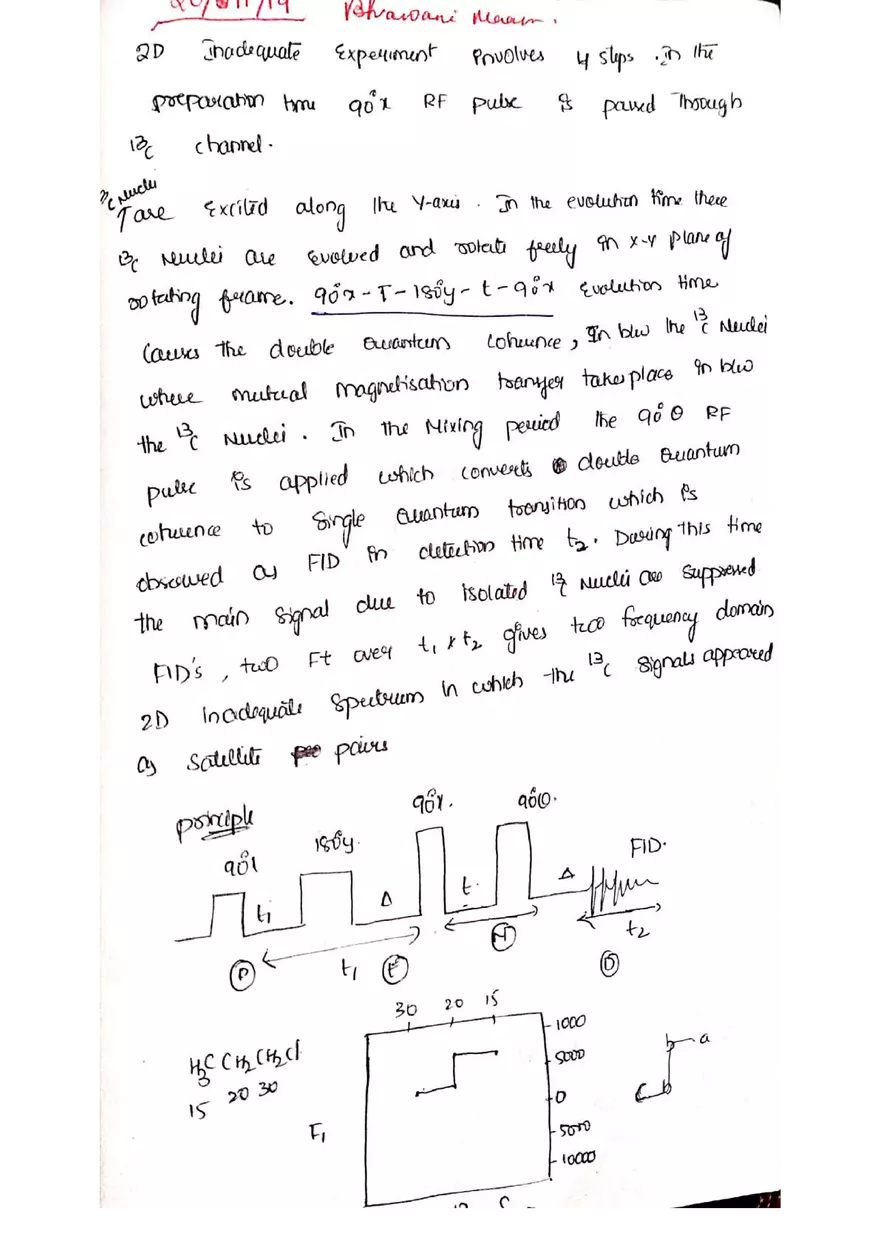 Bhawani Maam.
2D Inadequate Experiment involves 4 steps. In the
preparation time 90°x RF pulse is passed through
13C channel.
13C Nuclei
are Excited along the Y-axis. In the evolution time there
13C Nuclei are evolved and rotate freely in x-y plane of
rotating frame. 90°x-T-180°y-t-90°x Evolution time
Causes the double Quantum coherence, In b/w the 13C Nuclei
where mutual magnetisation transfer takes place in b/w
the 13C Nuclei. In the Mixing period the 90°θ RF
pulse is applied which converts double Quantum
coherence to Single Quantum transition which is
observed as FID in detection time t2. During This time
the main signal due to isolated 13C Nuclei are suppressed
FID's, two Ft over t1 & t2 gives two frequency domain
2D Inadequate Spectrum in which the 13C signals appeared
as satellite pairs
principle
90°x 180°y. 90°x. 90°θ.
FID.
t1 Δ t. Δ
P t1 E M D t2
30 20 15
1000
5000
0
5000
10000
H3C CH2 CH2 Cl
15 20 30
F1
b a
C b